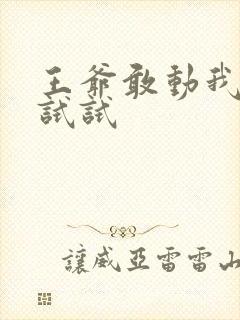 王爺敢動我
試試
讓威亞雷雷山